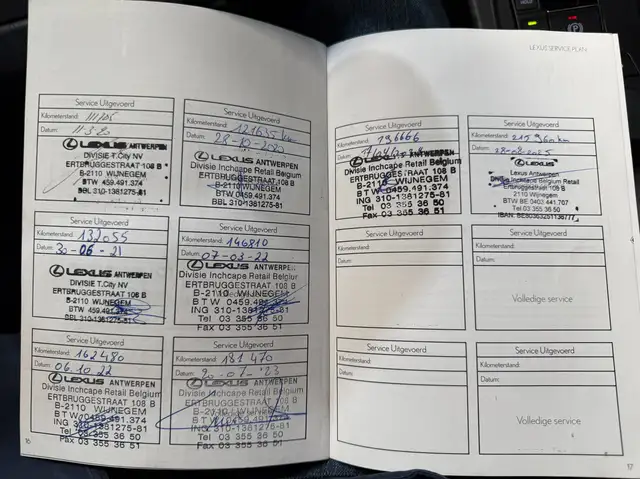 LEXUS SERVICE PLAN
Service Uitgevoerd
Kilometerstand: 111105
Datum: 11-3-20
LEXUS ANTWERPEN
DIVISIE T.City NV
ERTBRUGGESTRAAT 108 B
B-2110 WIJNEGEM
BTW 459.491.374
BBL 310-1381275-81
Service Uitgevoerd
Kilometerstand: 121635 km
Datum: 28-10-2020
LEXUS ANTWERPEN
Divisie Inchcape Retail Belgium
ERTBRUGGESTRAAT 108 B
B-2110 WIJNEGEM
BTW 459.491.374
BBL 310-1381275-81
Service Uitgevoerd
Kilometerstand: 132055
Datum: 30-06-21
LEXUS ANTWERPEN
DIVISIE T.City NV
ERTBRUGGESTRAAT 108 B
B-2110 WIJNEGEM
BTW 459.491.374
BBL 310-1381275-81
Service Uitgevoerd
Kilometerstand: 146810
Datum: 07-03-22
LEXUS ANTWERPEN
Divisie Inchcape Retail Belgium
ERTBRUGGESTRAAT 108 B
B-2110 WIJNEGEM
BTW 0459.491.374
ING 310-1381275-81
Tel 03 355 36 50
Fax 03 355 36 51
Service Uitgevoerd
Kilometerstand: 162480
Datum: 06.10.22
LEXUS ANTWERPEN
Divisie Inchcape Retail Belgium
ERTBRUGGESTRAAT 108 B
B-2110 WIJNEGEM
BTW 0459.491.374
ING 310-1381275-81
Tel 03 355 36 50
Fax 03 355 36 51
Service Uitgevoerd
Kilometerstand: 181 470
Datum: 20-07-'23
LEXUS ANTWERPEN
Divisie Inchcape Retail Belgium
ERTBRUGGESTRAAT 108 B
B-2110 WIJNEGEM
BTW 0459.491.374
ING 310-1381275-81
Tel 03 355 36 50
Fax 03 355 36 51
16
Service Uitgevoerd
Kilometerstand: 196666
Datum:
LEXUS ANTWERPEN
Divisie Inchcape Retail Belgium
ERTBRUGGESTRAAT 108 B
B-2110 WIJNEGEM
BTW 0459.491.374
ING 310-1381275-81
Tel 03 355 36 50
Fax 03 355 36 51
Service Uitgevoerd
Kilometerstand: 215960km
Datum: 28-08-2025
LEXUS
Lexus Antwerpen
Divisie Inchcape Retail Belgium
Ertbruggestraat 108 B
2110 Wijnegem
Tel.03 355 36 50
BTW BE 0403 441.707
Service Uitgevoerd
Kilometerstand:
Datum:
Service Uitgevoerd
Kilometerstand:
Datum:
Volledige service
Service Uitgevoerd
Kilometerstand:
Datum:
Service Uitgevoerd
Kilometerstand:
Datum:
Volledige service
17